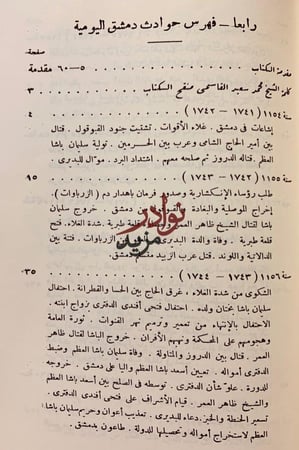 رابعا – فهرس حوادث دمشق اليومية
صفحة
مقدمة الكتاب ٥–٦٠ مقدمة
كلمة الشيخ محمد سعيد القاسمي منقح الكتاب ٣
سنة ١١٥٤ (١٧٤١ – ١٧٤٢) ٤
إشاعات في دمشق . غلاء الأقوات . تشتيت جنود القبوقول . قتال
بين أمير الحاج الشامي وعرب بين الحرمين . تولية سليمان باشا
العظم . قتاله الدروز ثم صلحه معهم . اشتداد البرد . موال للبديري
سنة ١١٥٥ (١٧٤٢ – ١٧٤٣) ١٥
طلب رؤساء الإنكشارية وصدور فرمان باهدار دم (الزرباوات) .
إخراج الموصلية والبغادة من دمشق . خروج سليمان
باشا لقتال الشيخ ظاهر العمر قلعة طبرية . شدة الغلاء . فتح
قلعة طبرية . وفاة والدة البديري الزرباوات . فتنة بين
الدالاتية واللوند . قتال عرب الزبيد دمشق
سنة ١١٥٦ (١٧٤٣ – ١٧٤٤) ٣٥
الشكوى من شدة الغلاء . غرق الحاج بين الحسا والقطرانة . احتفال
سليمان باشا بختان ولده . احتفال فتحي أفندي الدفتري بزواج ابنته .
الاحتفال بالإنتهاء من تعمير وترميم نهر القنوات . ثورة العامة
وهجومهم على المحكمة ونهبهم الأفران . خروج الباشا لقتال ظاهر
العمر . قتال بين الدروز والمتاولة . وفاة سليمان باشا العظم وضبط
الدفتري أمواله . تعيين أسعد باشا العظم واليا على دمشق . خروجه
للدورة . علو شأن الدفتري . توسطه في الصلح بين أسعد باشا العظم
والشيخ ظاهر العمر . قيام الأشراف على فتحي أفندي الدفتري .
تسعير الحنطة والخبز . دعاء للبديري . تعذيب أعوان وحريم سليمان باشا
العظم لاستخراج أمواله وتحصيلها للدولة . طاعون بدمشق .
نوادر
مزيد